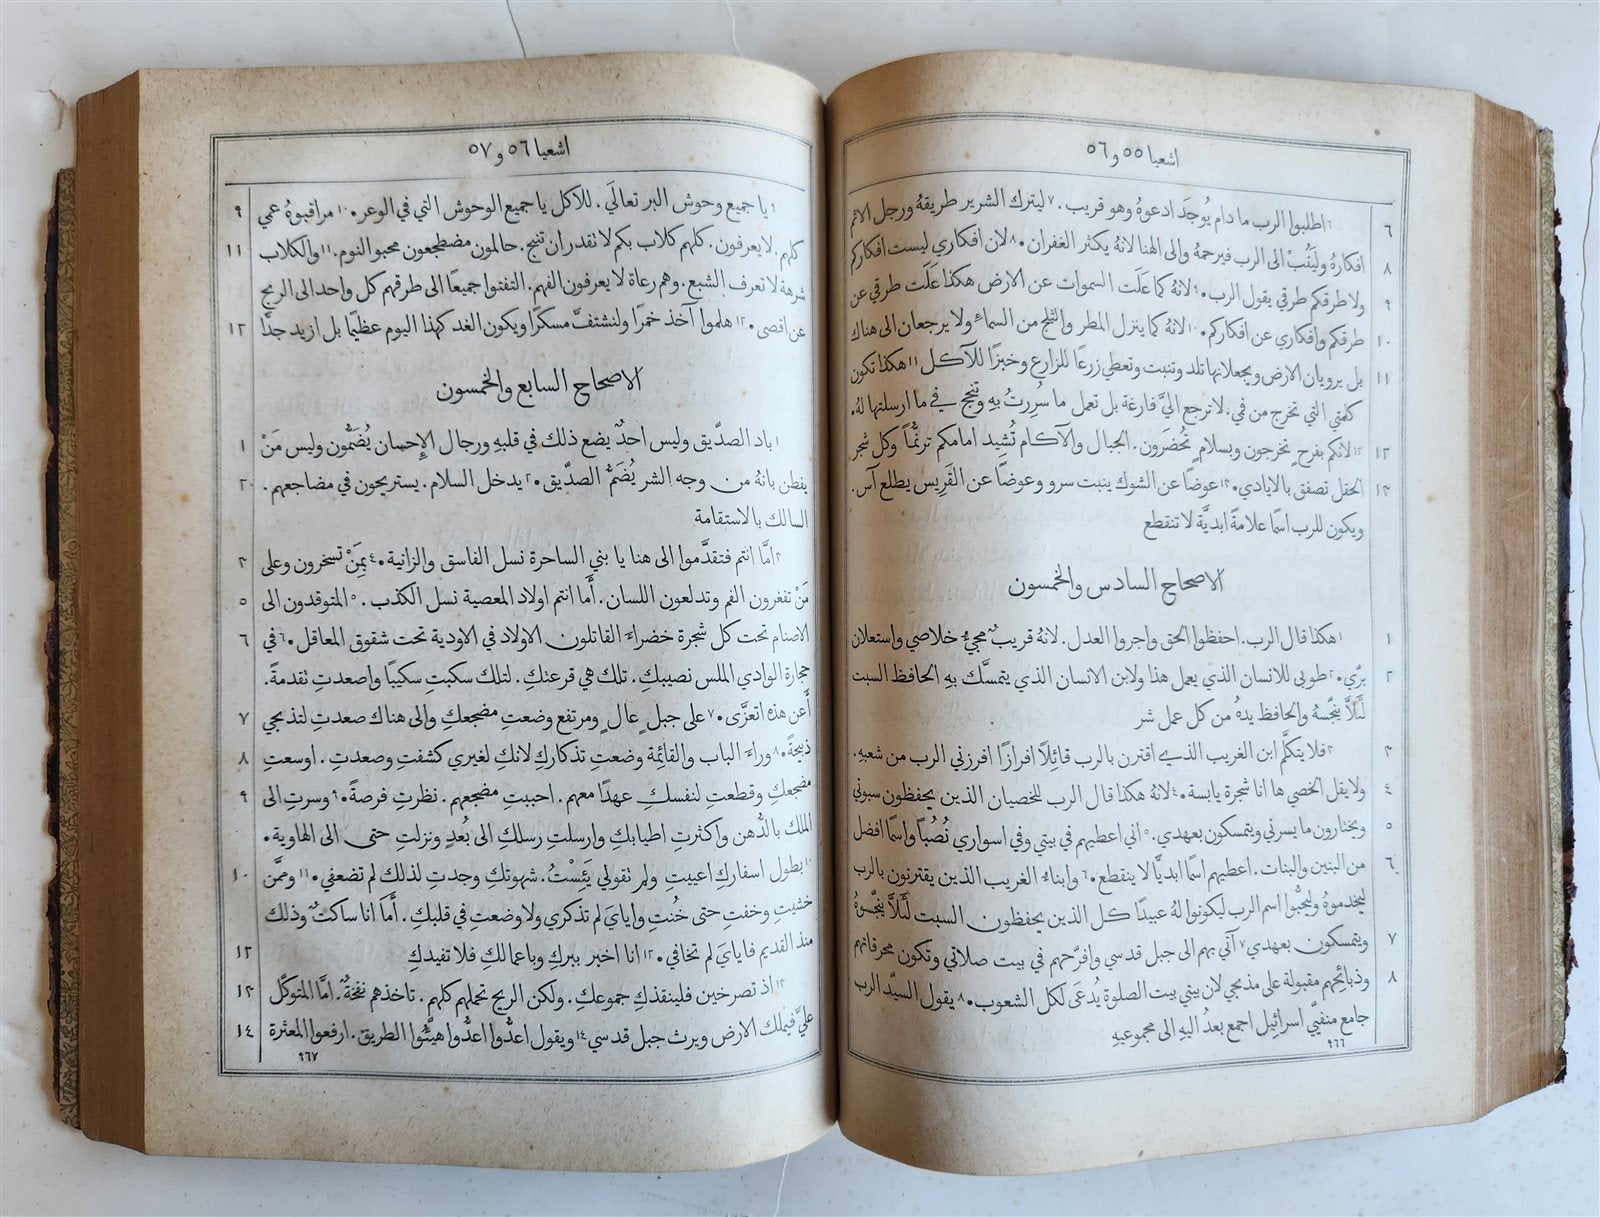 اشعيا ٥٥ و ٥٦
٦ ٦ اطلبوا الرب ما دام يُوجَد ادعوهُ وهو قريب. ٧ ليترك الشرير طريقهُ ورجل الاثم
٨ افكارهُ وليَتُبْ الى الرب فيرحمهُ والى الهنا لانهُ يكثر الغفران. ٨ لان افكاري ليست افكاركم
٩ ولا طرقكم طرقي يقول الرب. ٩ لانهُ كما عَلَت السموات عن الارض هكذا عَلَت طرقي عن
١٠ طرقكم وافكاري عن افكاركم. ١٠ لانهُ كما ينزل المطر والثلج من السماءِ ولا يرجعان الى هناك
١١ بل يرويان الارض ويجعلانها تلد وتنبت وتعطي زرعًا للزارع وخبزًا للآكل ١١ هكذا تكون
كلمتي التي تخرج من فمي. لا ترجع اليَّ فارغة بل تعمل ما سُرِرتُ بهِ وتنجح في ما ارسلتها لهُ.
١٢ ١٢ لانكم بفرحٍ تخرجون وبسلامٍ تُحضَرون. الجبال والآكام تُشِيد امامكم ترنُّمًا وكل شجر
١٣ الحقل تصفق بالايادي. ١٣ عوضًا عن الشوك ينبت سرو وعوضًا عن القَرِيس يطلع آس.
ويكون للرب اسمًا علامةً ابديَّة لا تنقطع
الاصحاح السادس والخمسون
١ ١ هكذا قال الرب. احفظوا الحق واجروا العدل. لانهُ قريبٌ مجيءُ خلاصي واستعلان
٢ برّي. ٢ طوبى للانسان الذي يعمل هذا ولابن الانسان الذي يتمسَّك بهِ الحافظ السبت
لئَلَّا ينجّسهُ والحافظ يدهُ من كل عمل شر
٣ ٣ فلا يتكلَّم ابن الغريب الذي اقترن بالرب قائِلًا افرازًا افرزني الرب من شعبهِ.
٤ ولا يقل الخصي ها انا شجرة يابسة. ٤ لانهُ هكذا قال الرب للخصيان الذين يحفظون سبوتي
٥ ويختارون ما يسرني ويتمسكون بعهدي. ٥ اني اعطيهم في بيتي وفي اسواري نُصُبًا واسمًا افضل
٦ من البنين والبنات. اعطيهم اسمًا ابديًّا لا ينقطع. ٦ وابناءُ الغريب الذين يقترنون بالرب
ليخدموهُ وليحبُّوا اسم الرب ليكونوا لهُ عبيدًا كل الذين يحفظون السبت لئَلَّا ينجّسوهُ
٧ ويتمسكون بعهدي ٧ آتي بهم الى جبل قدسي وافرّحهم في بيت صلاتي وتكون محرقاتهم
٨ وذبائحهم مقبولة على مذبحي لان بيتي بيت الصلوة يُدعَى لكل الشعوب. ٨ يقول السيّد الرب
جامع منفيّي اسرائيل اجمع بعدُ اليهِ الى مجموعيهِ
٩٦٦
اشعيا ٥٦ و ٥٧
٩ ٩ يا جميع وحوش البر تعالَي. للاكل يا جميع الوحوش التي في الوعر. ١٠ مراقبوهُ عمي
١١ كلهم. لا يعرفون. كلهم كلاب بكم لا تقدر ان تنبح. حالمون مضطجعون محبو النوم. ١١ والكلاب
شرهة لا تعرف الشبع. وهم رعاة لا يعرفون الفهم. التفتوا جميعًا الى طرقهم كل واحد الى الربح
١٢ عن اقصى. ١٢ هلموا آخذ خمرًا ولنشتفَّ مسكرًا ويكون الغد كهذا اليوم عظيمًا بل ازيد جدًّا
الاصحاح السابع والخمسون
١ ١ باد الصدّيق وليس احدٌ يضع ذلك في قلبهِ ورجال الإِحسان يُضَمُّون وليس مَنْ
٢ يفطن بانهُ من وجه الشر يُضَمُّ الصدّيق. ٢ يدخل السلام. يستريحون في مضاجعهم.
السالك بالاستقامة
٣ ٣ امَّا انتم فتقدَّموا الى هنا يا بني الساحرة نسل الفاسق والزانية. ٤ بِمَنْ تسخرون وعلى
٥ مَنْ تفغرون الفم وتدلعون اللسان. أَما انتم اولاد المعصية نسل الكذب. ٥ المتوقدون الى
٦ الاصنام تحت كل شجرة خضراءَ القاتلون الاولاد في الاودية تحت شقوق المعاقل. ٦ في
حجارة الوادي الملس نصيبكِ. تلك هي قرعتكِ. لتلك سكبتِ سكيبًا واصعدتِ تقدمةً.
٧ أَعن هذه اتعزَّى. ٧ على جبلٍ عالٍ ومرتفع وضعتِ مضجعكِ والى هناك صعدتِ لتذبحي
٨ ذبيحةً. ٨ وراءَ الباب والقائِمة وضعتِ تذكاركِ لانكِ لغيري كشفتِ وصعدتِ. اوسعتِ
٩ مضجعكِ وقطعتِ لنفسكِ عهدًا معهم. احببتِ مضجعهم. نظرتِ فرصةً. ٩ وسرتِ الى
الملك بالدُّهن واكثرتِ اطيابكِ وارسلتِ رسلكِ الى بُعدٍ ونزلتِ حتى الى الهاوية.
١٠ ١٠ بطول اسفاركِ اعييتِ ولم تقولي يَئِسْتُ. شهوتكِ وجدتِ لذلك لم تضعفي. ١١ وممَّن
خشيتِ وخفتِ حتى خُنتِ وايايَ لم تذكري ولا وضعتِ في قلبكِ. أَمَا انا ساكتٌ وذلك
١٢ منذ القديم فايايَ لم تخافي. ١٢ انا اخبر ببركِ وباعمالكِ فلا تفيدكِ
١٣ ١٣ اذ تصرخين فلينقذكِ جموعكِ. ولكن الريح تحملهم كلهم. تاخذهم نفخةٌ. امَّا المتوكّل
١٤ عليَّ فيملك الارض ويرث جبل قدسي ١٤ ويقول اعدُّوا اعدُّوا هيّئُوا الطريق. ارفعوا المعثرة
٩٦٧